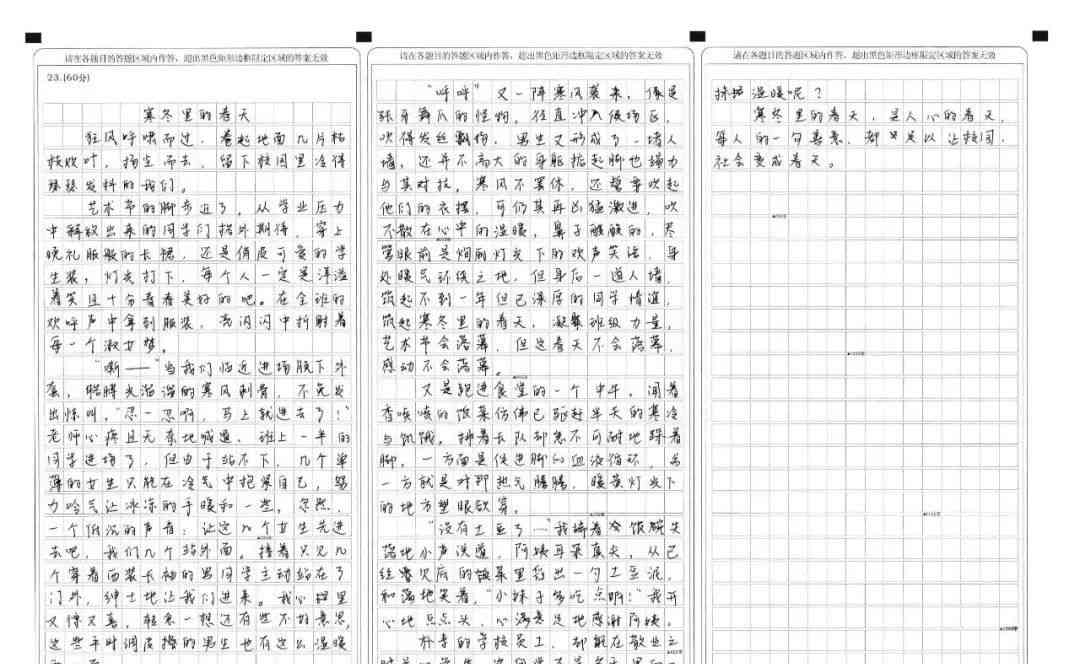 请在各题目的答题区域内作答，超出黑色矩形边框限定区域的答案无效
23.(60分)
寒冬里的春天
狂风呼啸而过，卷起地面几片枯
枝败叶，扬尘而去，留下校园里冷得
瑟瑟发抖的我们。
艺术节的脚步近了，从学业压力
中解放出来的同学们格外期待，穿上
晚礼服般的长裙，还是俏皮可爱的学
生装，灯光打下，每个人一定是洋溢
着笑且十分青春美好的吧。在全班的
欢呼声中拿到服装，亮闪闪中折射着
每一个淑女梦。
“嘶——”当我们临近进场脱下外
套，胳膊光溜溜的寒风刺骨，不免发
出惊叫，“忍一忍啊，马上就进去了！”
老师心疼且无奈地喊道，班上一半的
同学进场了，但由于站不下，几个单
薄的女生只能在冷气中抱紧自己，努
力哈气让冰冻的手暖和一些，忽然，
一个低沉的声音：让这几个女生先进
去吧，我们几个站外面。接着只见几
个穿着西装长袖的男同学主动站在了
门外，绅士地让我们进来。我心里
又惊又喜，轻意一想还有些不好意思，
这些平时调皮捣的男生也有这么温暖
请在各题目的答题区域内作答，超出黑色矩形边框限定区域的答案无效
“呼呼”又一阵寒风袭来，像是
张牙舞爪的怪物，径直冲入候场区，
吹得发丝飘扬，男生又形成了一堵人
墙，还并不高大的身躯掂起脚也竭力
与其对抗，寒风不罢休，还誓要吹起
他们的衣摆，可任其再凶猛激进，吹
不散在心中的温暖，鼻子酸酸的，尽
管眼前是绚丽灯光下的欢声笑语，身
处暖气环绕之地，但身后一道人墙，
筑起不到一年但已深厚的同学情谊，
筑起寒冬里的春天，凝聚班级力量，
艺术节会落幕，但这春天不会落幕，
感动不会落幕。
又是跑进食堂的一个中午，闻着
香喷喷的饭菜仿佛已驱赶半天的寒冷
与饥饿，排着长队却急不可耐地跺着
脚，一方面是促进脚的血液循环，另
一方就是对那热气腾腾，暖黄灯光下
的地方望眼欲穿。
“没有土豆了”我端着饭碗失
落地小声说道，阿姨耳朵真尖，从已
经见底的饭菜里舀出一勺土豆泥，
和蔼地笑着，“小妹子多吃点啊！”我开
心地点点头，心满意足地感谢阿姨。
朴素的学校员工，却能在散业之
请在各题目的答题区域内作答，超出黑色矩形边框限定区域的答案无效
温暖呢？
寒冬里的春天，是人心的春天，
每人的一句善意，都足以让校园，
社会变成春天。